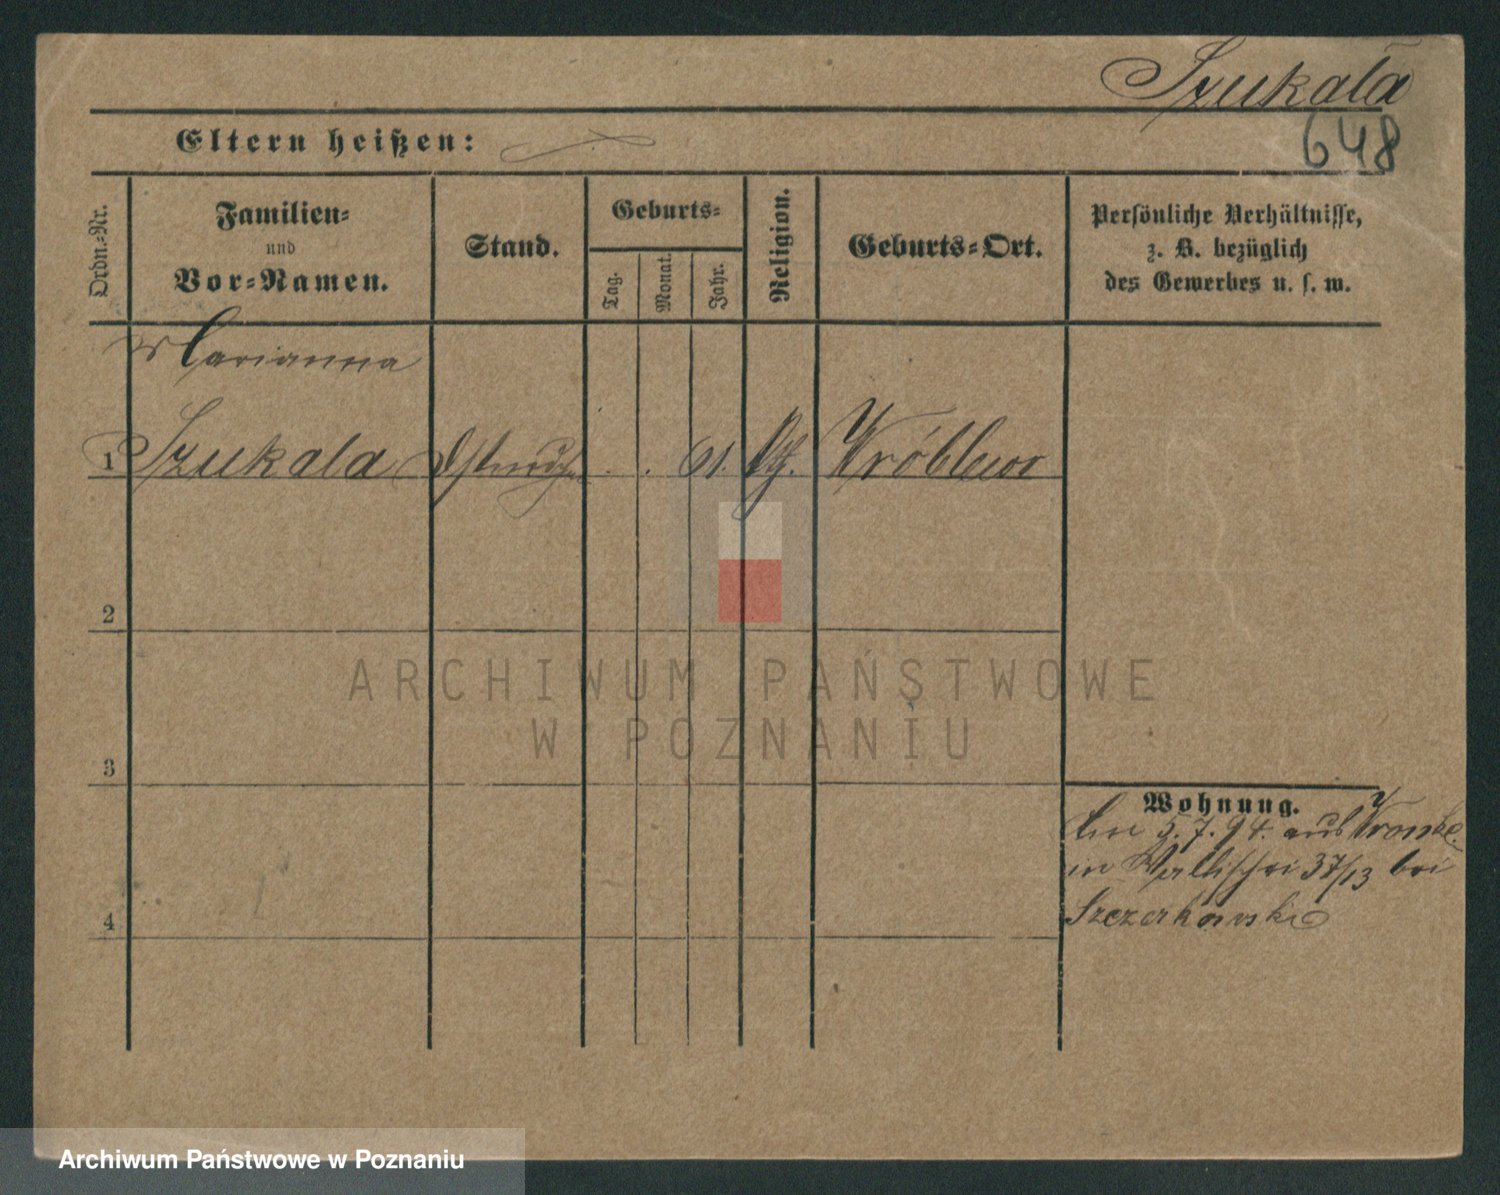 Szukala
648
Eltern heißen:
Ordn.-Nr.
Familien-
und
Vor-Namen.
Stand.
Geburts-
Tag.
Monat.
Jahr.
Religion.
Geburts-Ort.
Persönliche Verhältnisse,
z. B. bezüglich
des Gewerbes u. s. w.
Marianna
1 Szukala 61. Wróblewo
2
3
4
Wohnung.
5.7.94. aus Wronke
in 37/13 bei
Szczerkowski
ARCHIWUM PAŃSTWOWE
W POZNANIU
Archiwum Państwowe w Poznaniu